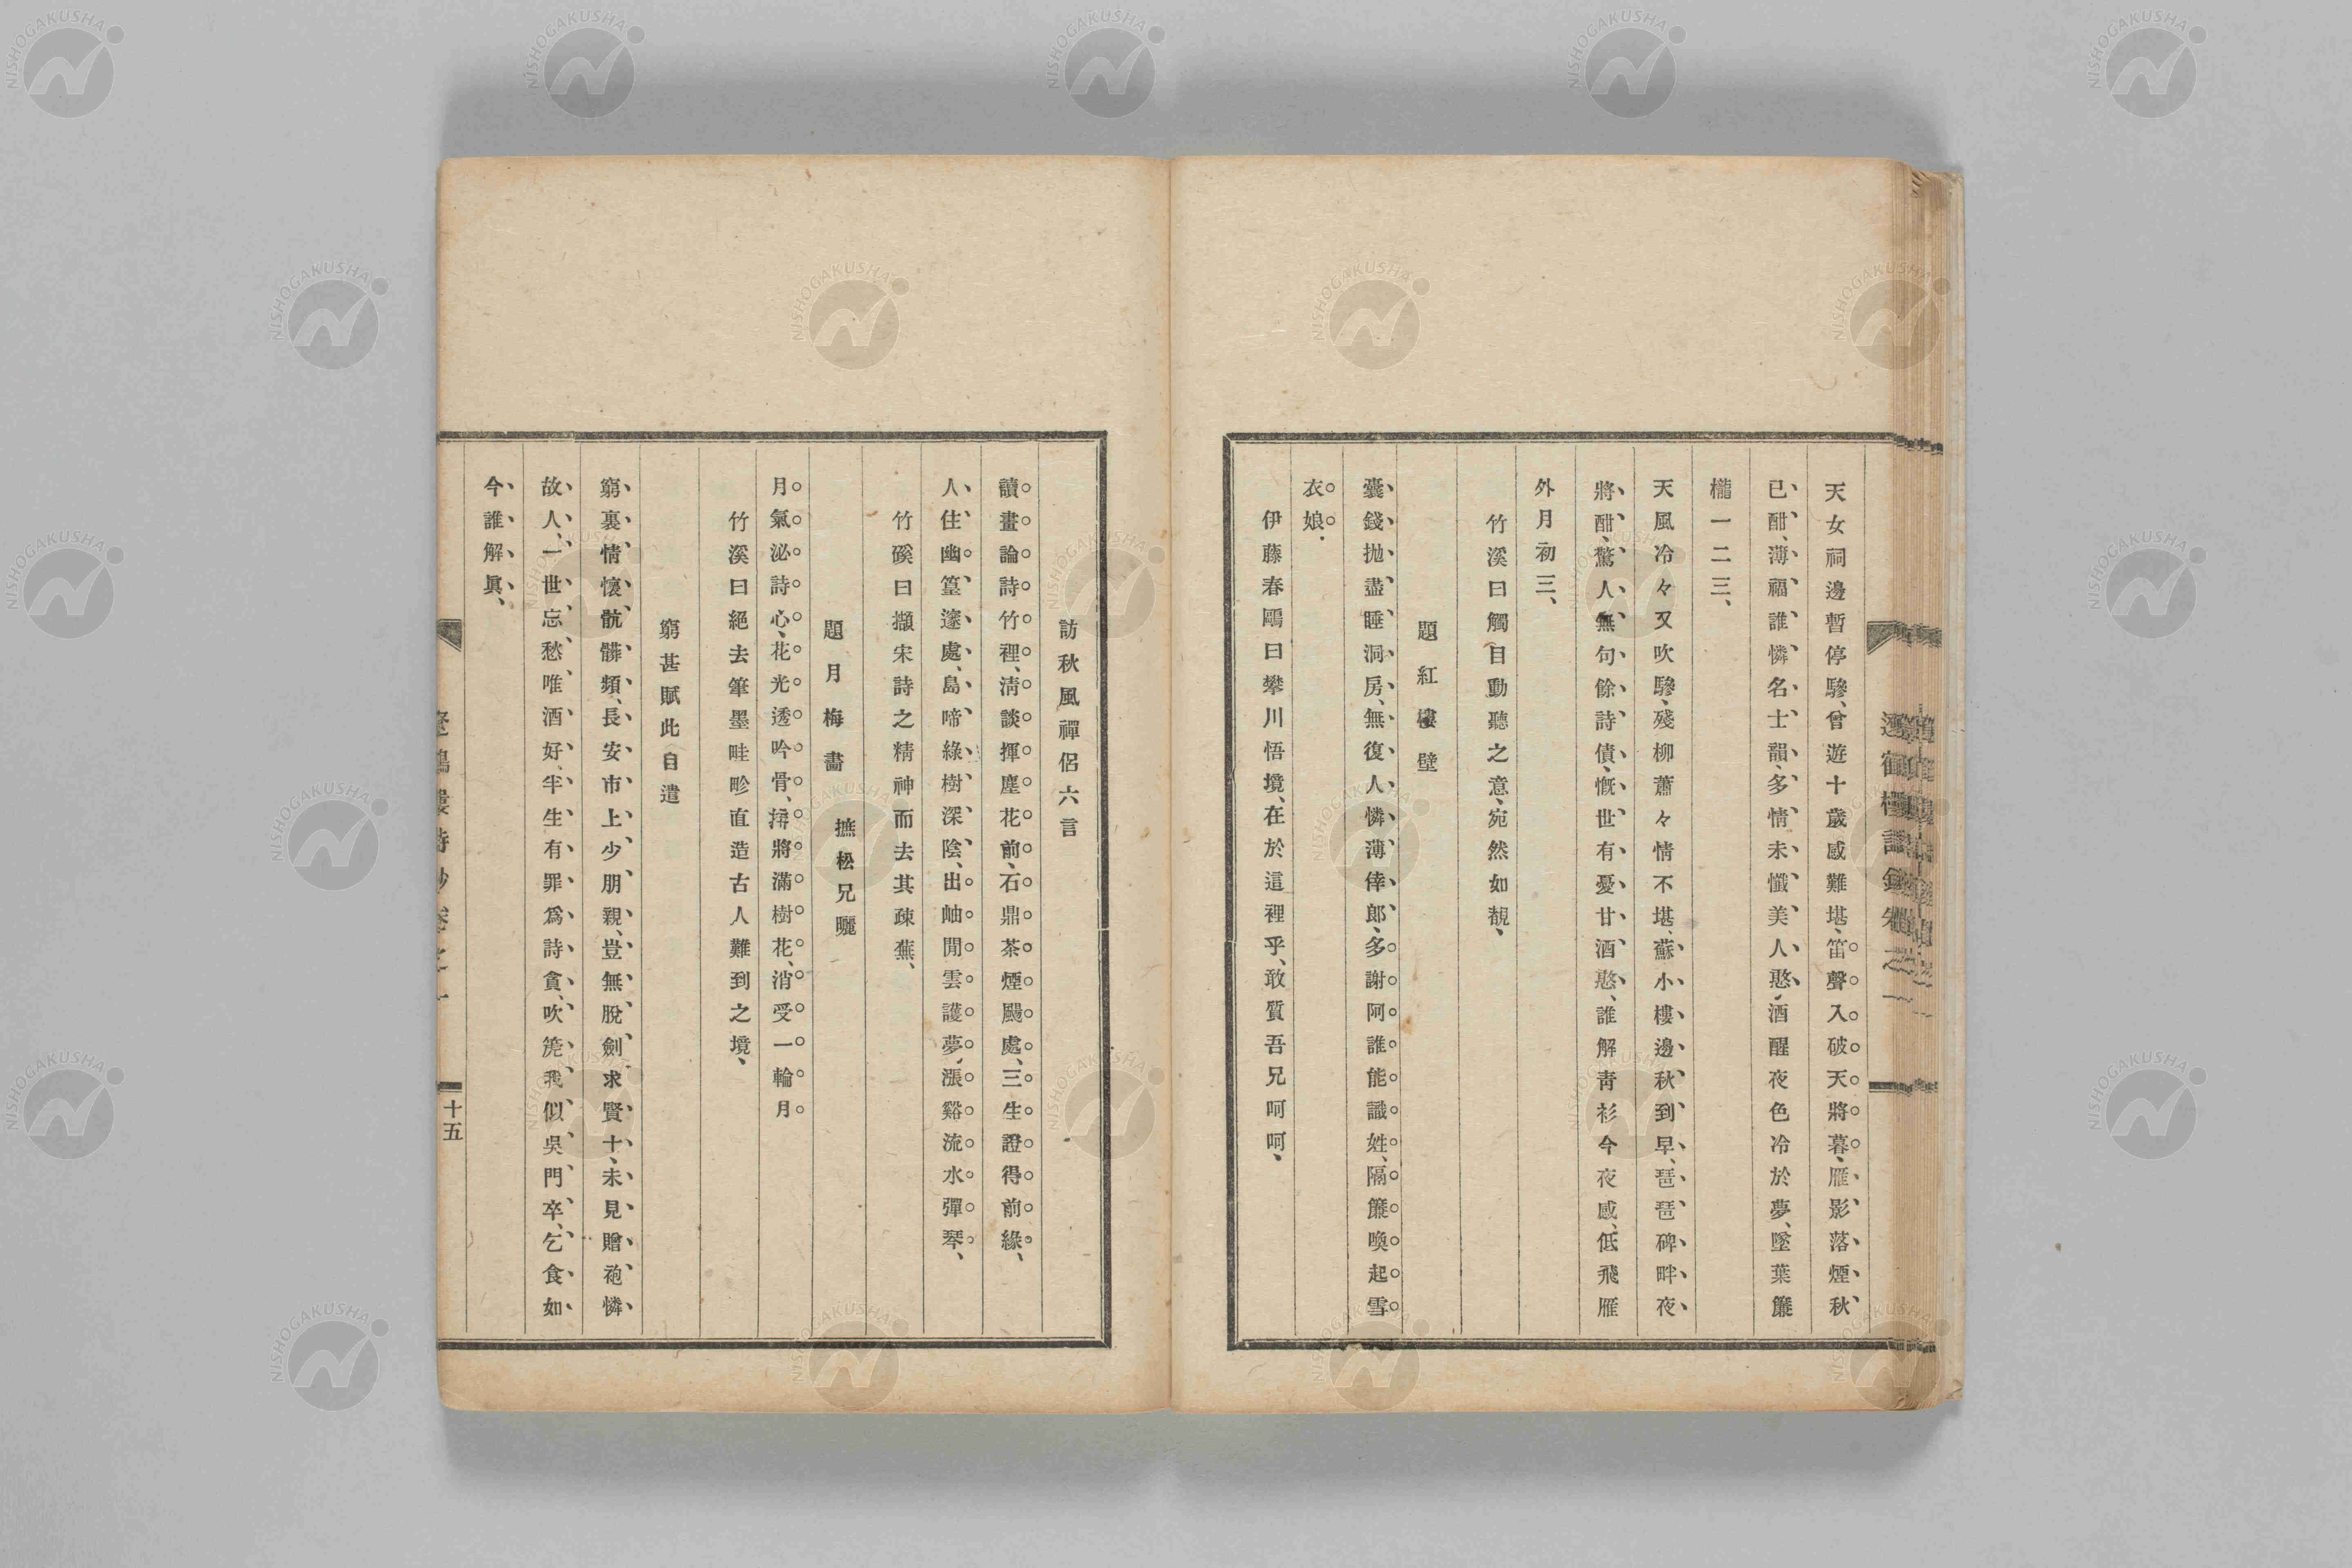 天女祠邊暫停驂、曾遊十歲感難堪、笛聲入破天將暮、雁影落煙秋
已酣、薄福誰憐名士韻、多情未懺美人憨、酒醒夜色冷於夢、墜葉簾
櫳一二三、
天風冷々又吹驂、殘柳蕭々情不堪、蘇小樓邊秋到早、琶琶碑畔夜
將酣、驚人無句餘詩債、慨世有憂甘酒憨、誰解靑衫今夜感、低飛雁
外月初三、
竹溪曰觸目動聽之意、宛然如覩、
題紅樓壁
囊錢拋盡睡洞房、無復人憐薄倖郎、多謝阿誰能識姓、隔簾喚起雪
衣娘、
伊藤春鷗曰攀川悟境、在於這裡乎、敢質吾兄呵呵、
訪秋風禪侶六言
讀畫論詩竹裡、淸談揮塵花前、石鼎茶煙颺處、三生證得前緣、
人住幽篁邃處、島啼綠樹深陰、出岫閒雲護夢、漲谿流水彈琴、
竹磎曰擷宋詩之精神而去其疎蕪、
題月梅畵 摭松兄曬
月氣泌詩心、花光透吟骨、將滿樹花、消受一輪月
竹溪曰絕去筆墨畦畛直造古人難到之境、
窮甚賦此自遣
窮裏情懷骯髒頻、長安市上少朋親、豈無脫劍求賢士、未見贈袍憐
故人、一世忘愁唯酒好、半生有罪爲詩貪、吹箎我似吳門卒、乞食如
今誰解眞、
十五